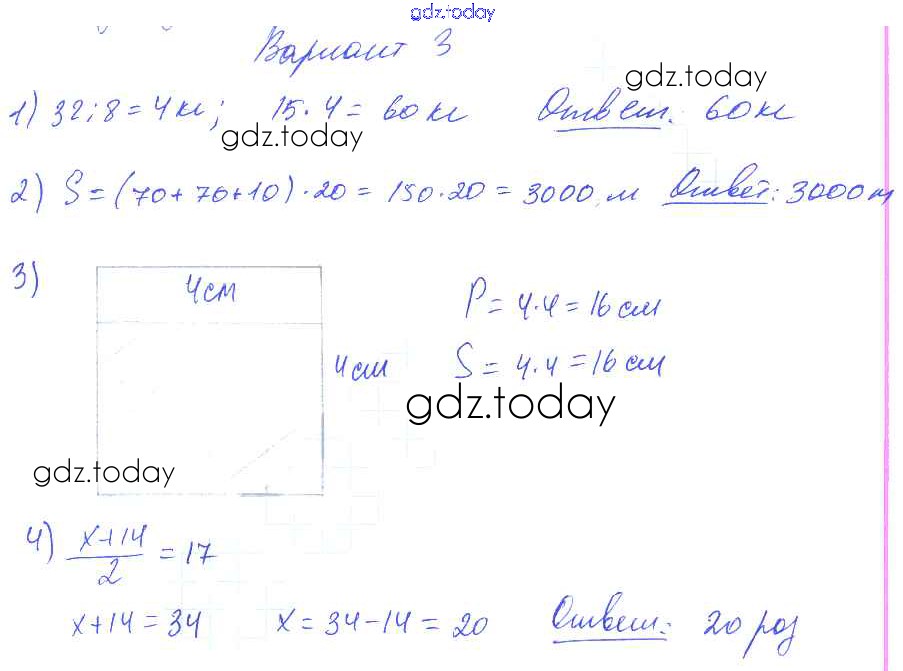 gdz.today
Вариант 3
gdz.today
1) 32:8=4кг; 15·4=60кг Ответ: 60кг
gdz.today
2) S=(70+70+10)·20=150·20=3000м Ответ: 3000м
3)
4см
P=4·4=16см
4см
S=4·4=16см
gdz.today
gdz.today
4) x+14/2=17
x+14=34 x=34-14=20 Ответ: 20 роз